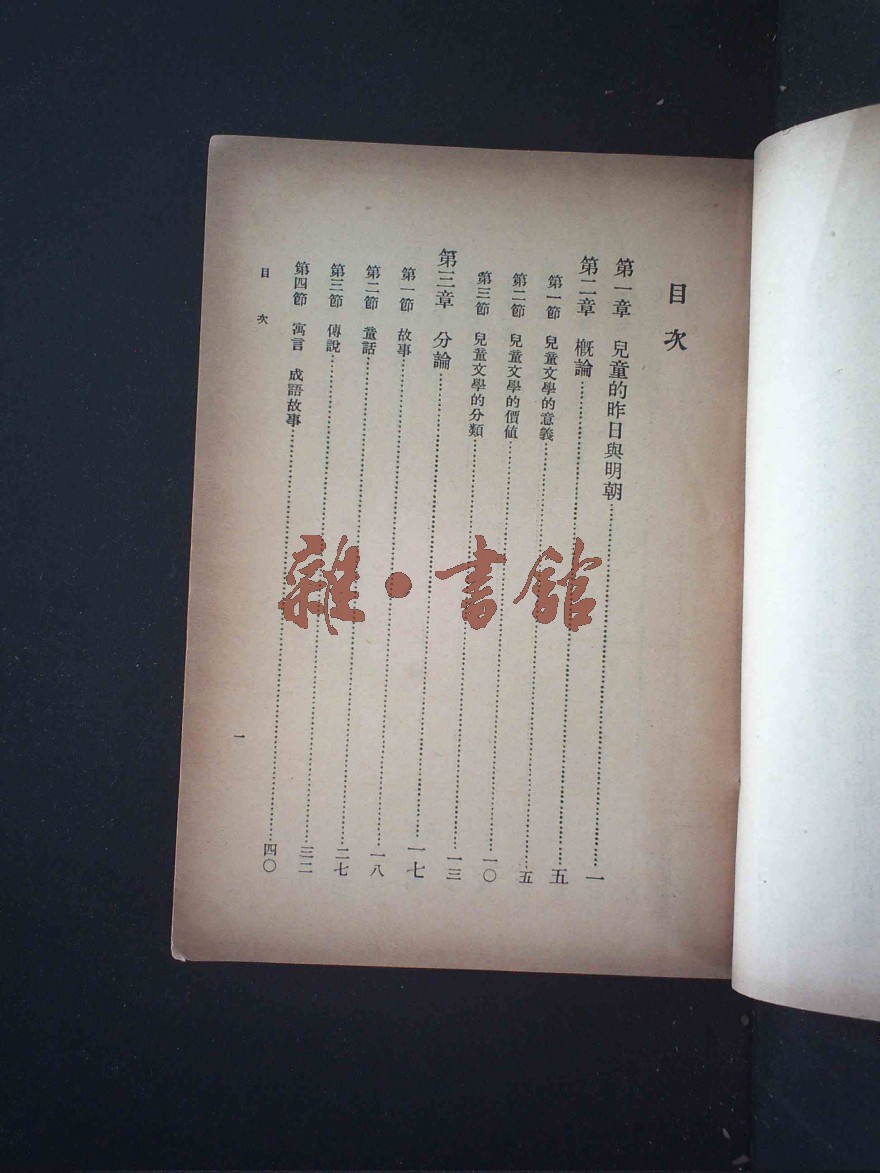 目次
第一章 兒童的昨日與明朝……一
第二章 概論……五
第一節 兒童文學的意義……五
第二節 兒童文學的價值……一〇
第三節 兒童文學的分類……一三
第三章 分論……一七
第一節 故事……一八
第二節 童話……二七
第三節 傳說……三二
第四節 寓言 成語故事……四〇
目次
一
雜·書館